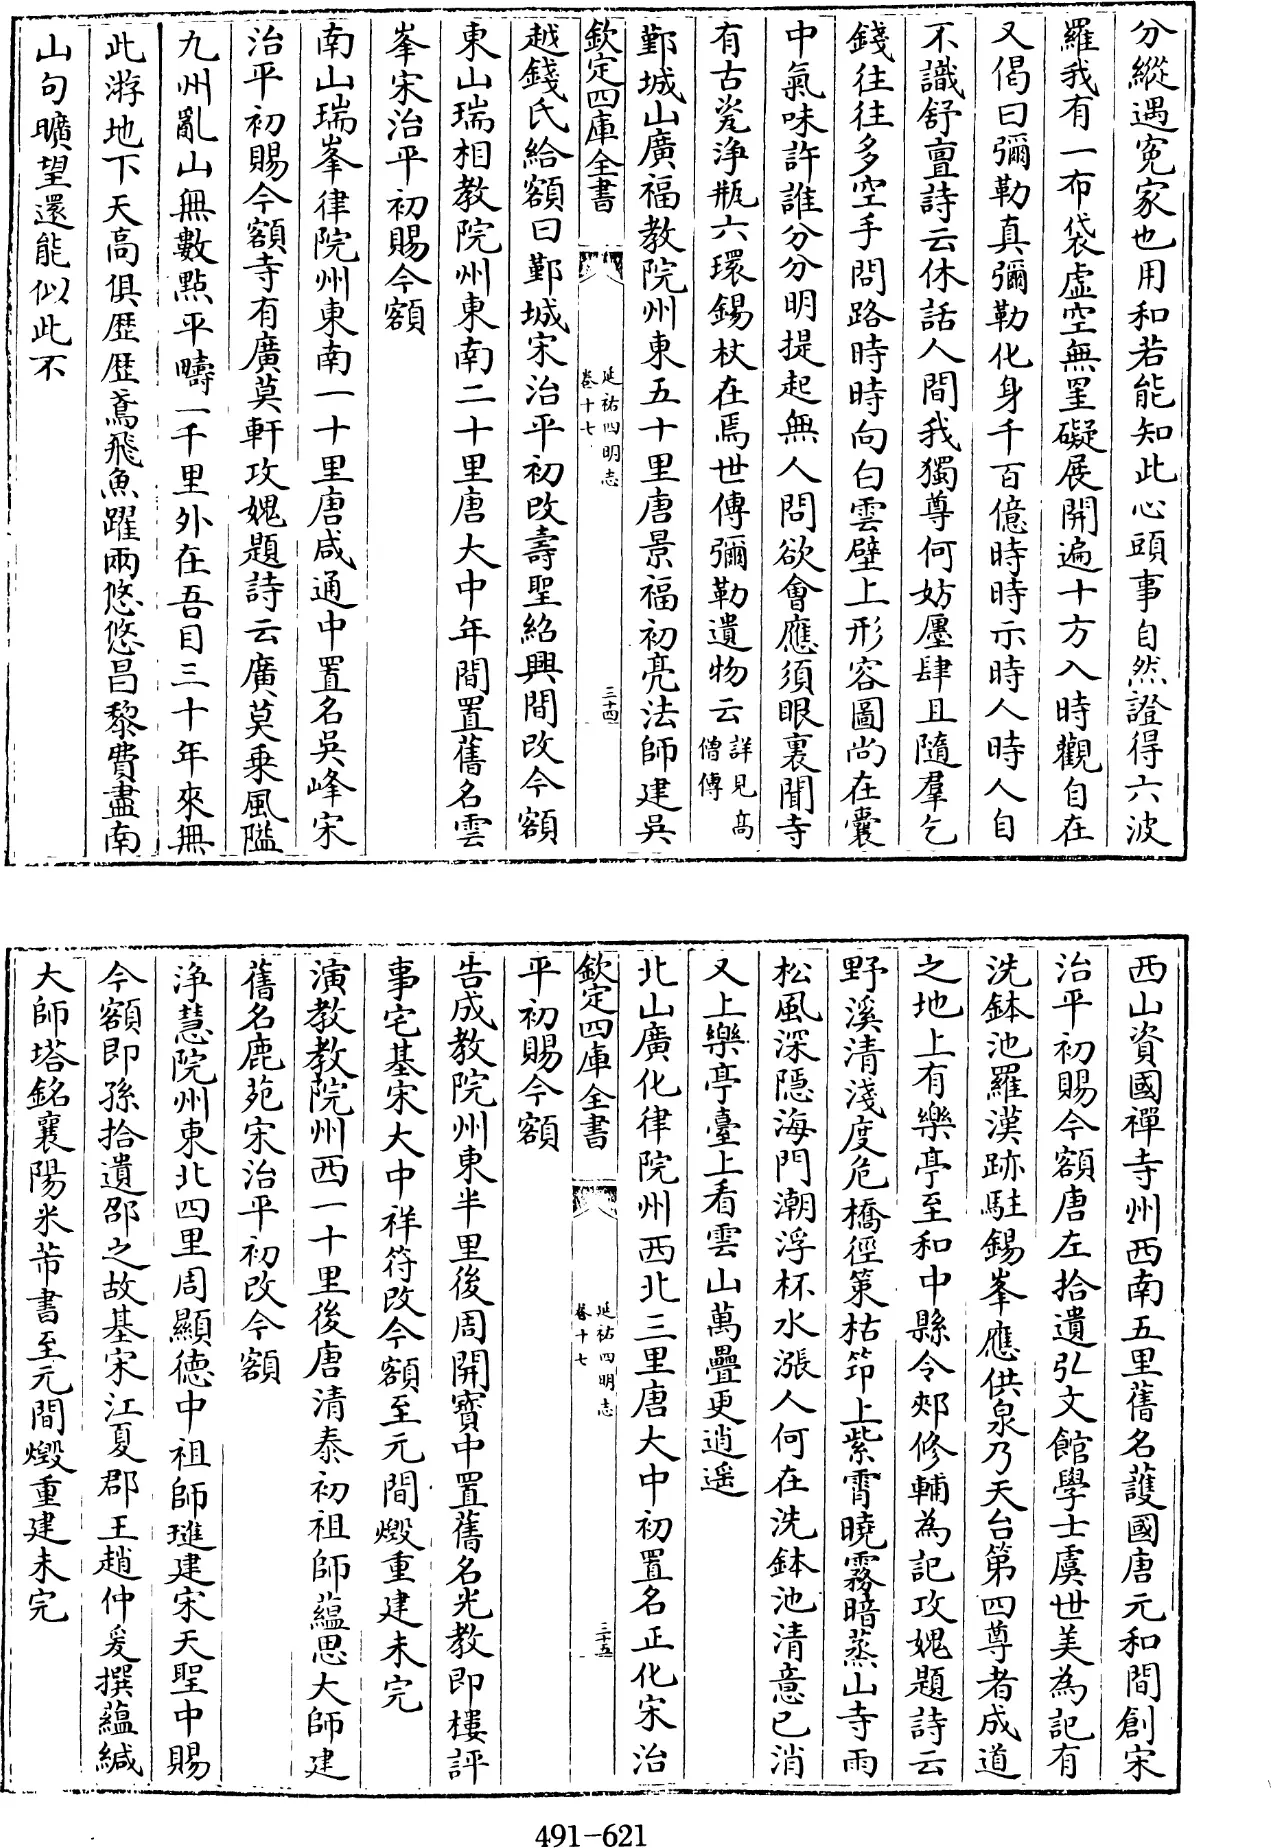 分縱遇冤家也用和若能知此心頭事自然證得六波
羅我有一布袋虛空無罣礙展開遍十方入時觀自在
又偈曰彌勒真彌勒化身千百億時時示時人時人自
不識舒亶詩云休話人間我獨尊何妨廛肆且隨羣乞
錢往往多空手問路時時向白雲壁上形容圖尚在囊
中氣味許誰分分明提起無人問欲會應須眼裏聞寺
有古瓷淨瓶六環錫杖在焉世傳彌勒遺物云詳見高僧傳
鄞城山廣福教院州東五十里唐景福初亮法師建吳
欽定四庫全書 延祐四明志 卷十七 三十四
越錢氏給額曰鄞城宋治平初改壽聖紹興間改今額
東山瑞相教院州東南二十里唐大中年間置舊名雲
峯宋治平初賜今額
南山瑞峯律院州東南一十里唐咸通中置名吳峰宋
治平初賜今額寺有廣莫軒攻媿題詩云廣莫乗風隘
九州亂山無數點平疇一千里外在吾目三十年來無
此游地下天高俱歴歴鳶飛魚躍兩悠悠昌黎費盡南
山句曠望還能似此不
西山資國禪寺州西南五里舊名護國唐元和間創宋
治平初賜今額唐左拾遺弘文館學士虞世美為記有
洗鉢池羅漢跡駐錫峯應供泉乃天台第四尊者成道
之地上有樂亭至和中縣令郟修輔為記攻媿題詩云
野溪清淺度危橋徑策枯筇上紫霄曉霧暗蒸山寺雨
松風深隱海門潮浮杯水漲人何在洗鉢池清意已消
又上樂亭臺上看雲山萬疊更逍遥
北山廣化律院州西北三里唐大中初置名正化宋治
欽定四庫全書 延祐四明志 卷十七 三十五
平初賜今額
告成教院州東半里後周開寶中置舊名光教即樓評
事宅基宋大中祥符改今額至元間燬重建未完
演教教院州西一十里後唐清泰初祖師蘊思大師建
舊名鹿苑宋治平初改今額
淨慧院州東北四里周顯德中祖師璡建宋天聖中賜
今額即孫拾遺郃之故基宋江夏郡王趙仲爰撰蘊緘
大師塔銘襄陽米芾書至元間燬重建未完
491-621